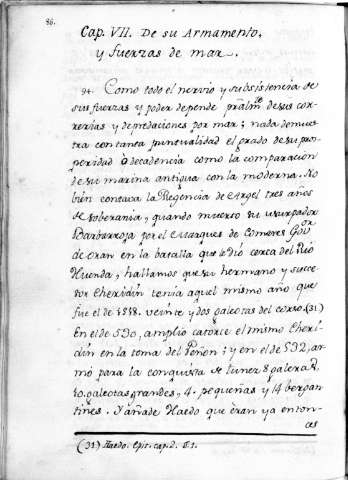 86.
Cap. VII. De su Armamento,
y fuerzas de mar.
94. Como todo el nervio y subsistencia de
sus fuerzas y poder depende pralm.te de sus cor-
rerias y depredaciones por mar; nada demues-
tra con tanta puntualidad el grado de su pros-
peridad o decadencia como la comparacion
de su marina antigua con la moderna. No
bien contava la Regencia de Argel tres años
de soberania, quando muerto su usurpador
Barbarroja por el Marques de Comares Gov.or
de Oran en la batalla que le dió cerca del Rio
Huenda, hallamos que su hermano y succe-
sor Cheridin tenia aquel mismo año que
fue el de 1518. veinte y dos galeotas del corso.(31.)
En el de 530, amplio catorce el mismo Cheri-
din en la toma del Peñon; y en el de 532, ar-
mó para la conquista de Tunez 8 galeras,
10. galeotas grandes, y 4. pequeñas y 14 bergan-
tines. Y añade Haedo que eran ya enton-
ces
(31) Haedo. Epit. cap. 2. §. 1.